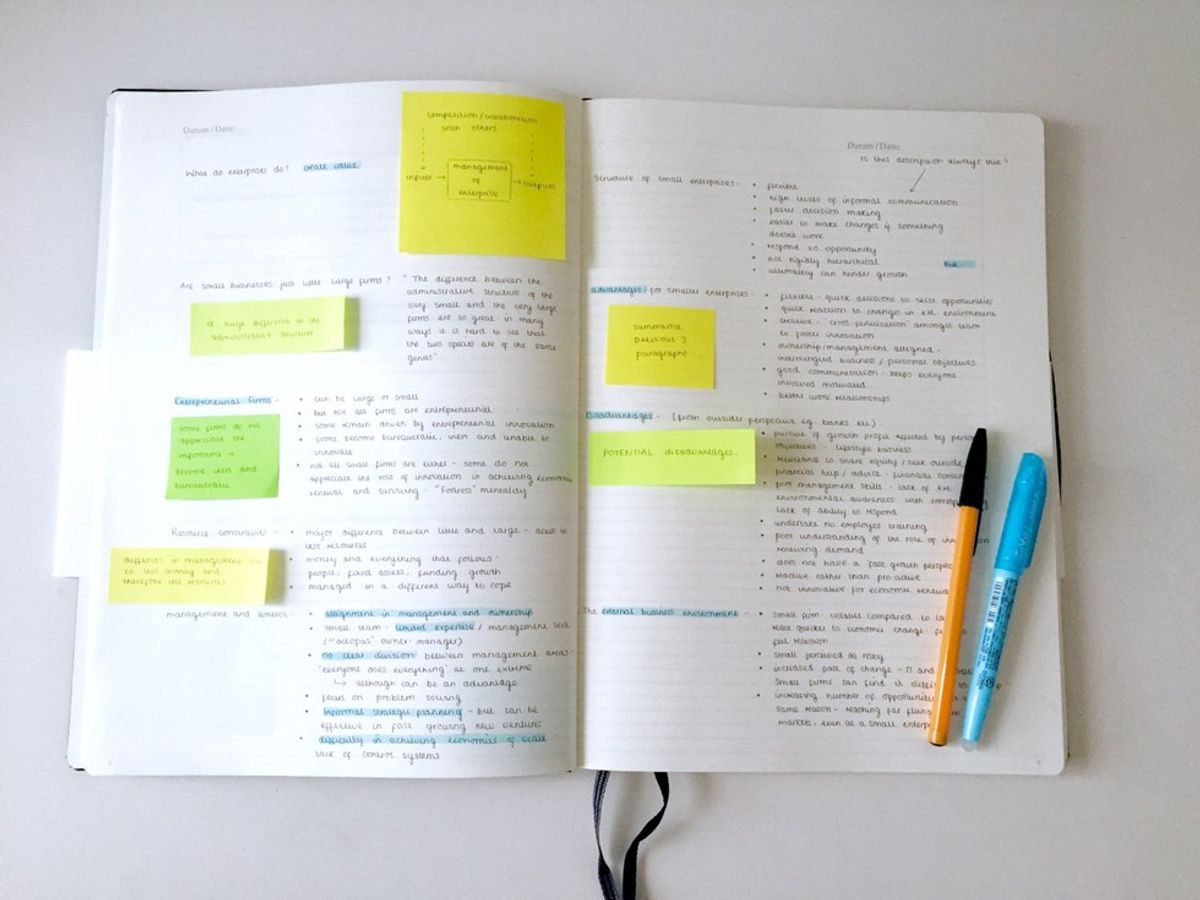 Datum/Date:
What do enterprises do? create value
competition/collaboration
with others
inputs → management → outputs
of
enterprise
Are small businesses just little large firms?
" The difference between the
administrative structure of the
very small and the very large
firms are so great - in many
ways it is hard to see that
the two species are of the same
genus"
huge difference in the
administrative structure
Entrepreneurial Firms -
• can be large or small
• but not all firms are entrepreneurial
• some remain driven by entrepreneurial innovation
• some become bureaucratic, inert and unable to
innovate
• not all small firms are either - some do not
appreciate the role of innovation in achieving economic
renewal and surviving - "Fortress" mentality
some firms do not
appreciate the
importance →
become inert and
bureaucratic
Resource constraints -
• major difference between little and large - access to
less resources
• money and everything that follows:
people, fixed assets, funding growth
• managed in a different way to cope
differences in management due
to less money and
therefore less resources
management and control -
• alignment in management and ownership
• small team - limited expertise / management skill
("octopus" owner-manager)
• no clear division between management areas -
'everyone does everything' at one extreme
↳ although can be an advantage
• focus on problem solving
• Informal strategic planning - but can be
effective in fast growing new ventures
• difficulty in achieving economies of scale
lack of control systems
Datum/Date:
Is this description always true?
Structure of small enterprises -
• flexible
• high levels of informal communication
• faster decision making
• easier to make changes if something
doesnt work
• respond to opportunity
• not rigidly hierarchical
• ultimately can hinder growth
advantages for smaller enterprises -
• flexible - quick decisions to seize opportunities
• quick reaction to changes in ext. environment
• creative - 'cross-fertilisation' amongst team
to foster innovation
• ownership/management aligned -
intermingled business / personal objectives
• good communication - keeps everyone
involved motivated
• better work relationships
summarise
previous 3
paragraphs
Disadvantages - (from outsider perspective eg. banks etc)
POTENTIAL disadvantages.
• pursuit of growth profit affected by
objectives - lifestyle business
• reluctance to share equity / seek outside
financial help / advice - financial
• poor management skills - lack of ext.
environmental awareness with
lack of ability to respond
• undertake no employee training
• poor understanding of the role of
renewing demand
• does not have a fast growth
• reactive rather than pro-active
• not innovative for economic
The external business environment -
• Small firm - volatile compared to
react quicker to economic change -
feel recession
• Small perceived as risky
• increased pace of change - IT and
Small firms can find it
• increasing number of
same reason - reaching far
markets, even as a small